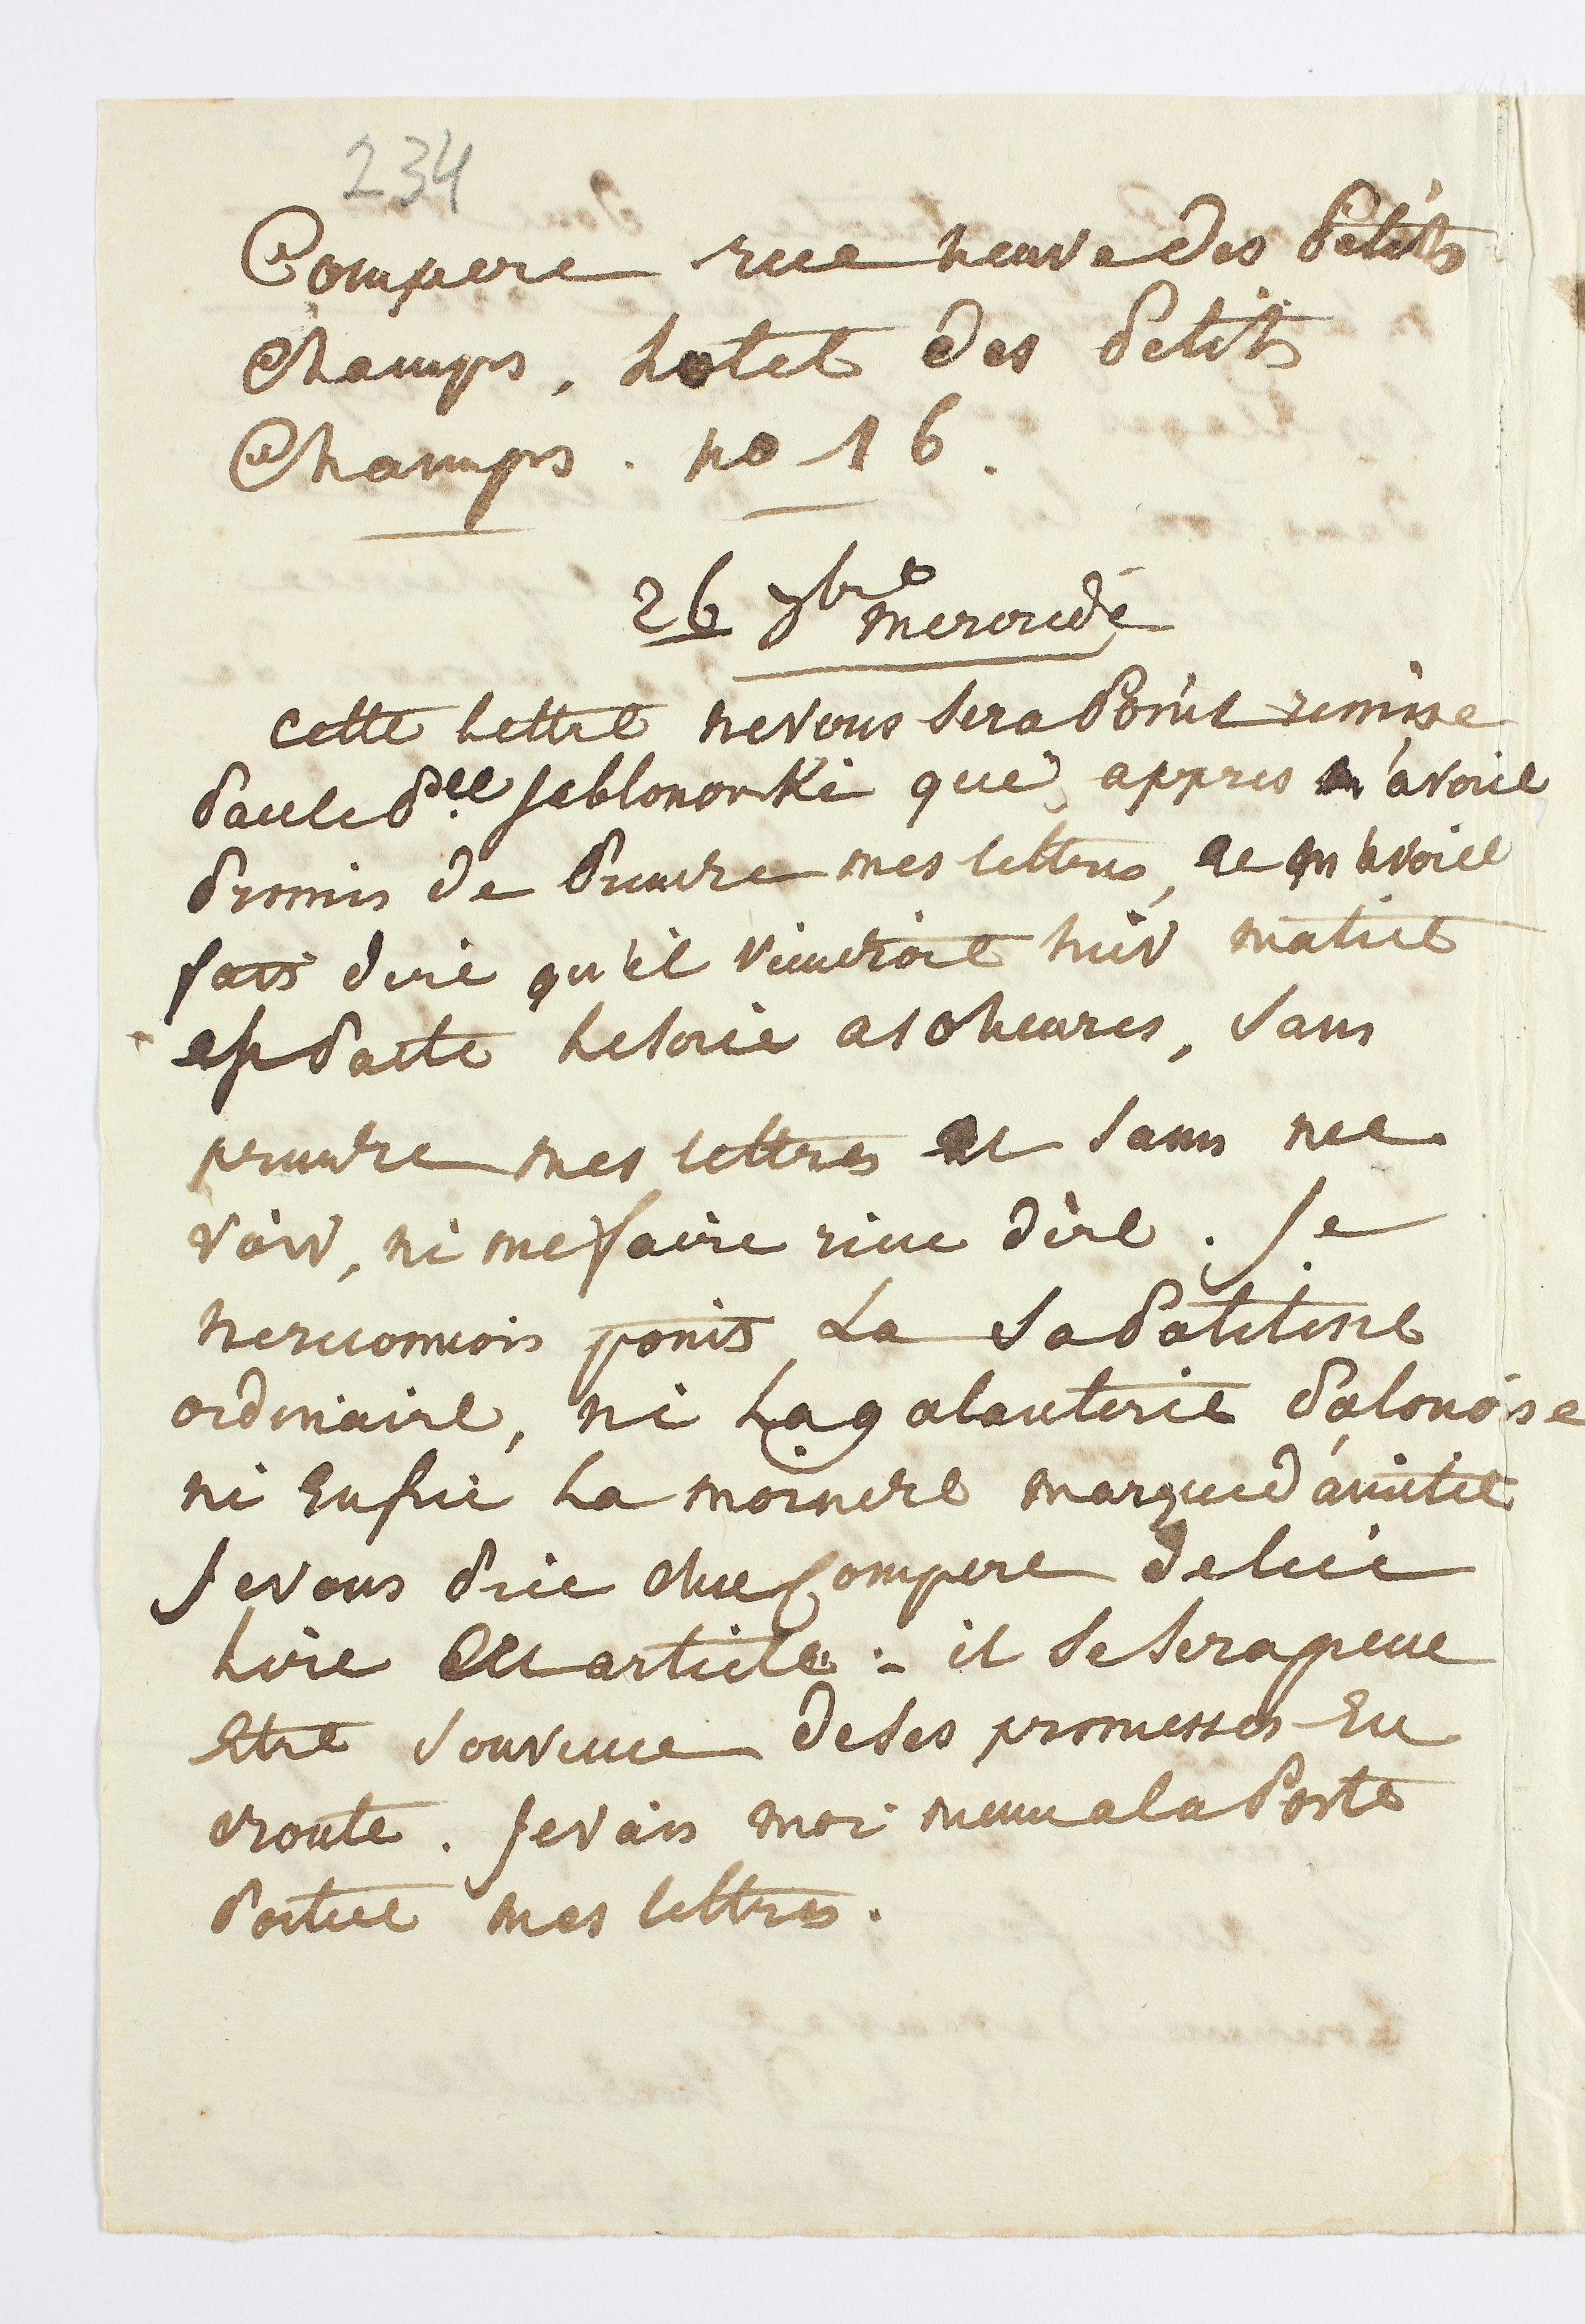 234
Compere rue neuve des Petits
Champs, hotel des Petits
Champs. no 16.
26 7bre mercredi
cette lettre ne vous sera Point remise
Par le Pce Jablonowki que, appres m'avoir
Promis de Prendre mes lettres, et m'avoir
fait dire qu'il viendroit hier matin
est Parti le soir a 10 heures, sans
prendre mes lettres et sans me
voir, ni me faire rien dire. Je
ne reconnois point La Sa Politesse
ordinaire, ni La galanterie Polonoise
ni Enfin La moindre marque d'amitié
Je vous Prie cher Compere de lui
Lire Cet article: il se sera peut
Etre souvenu de ses promesses En
route. Je vais moi meme a la Poste
Porter mes lettres.